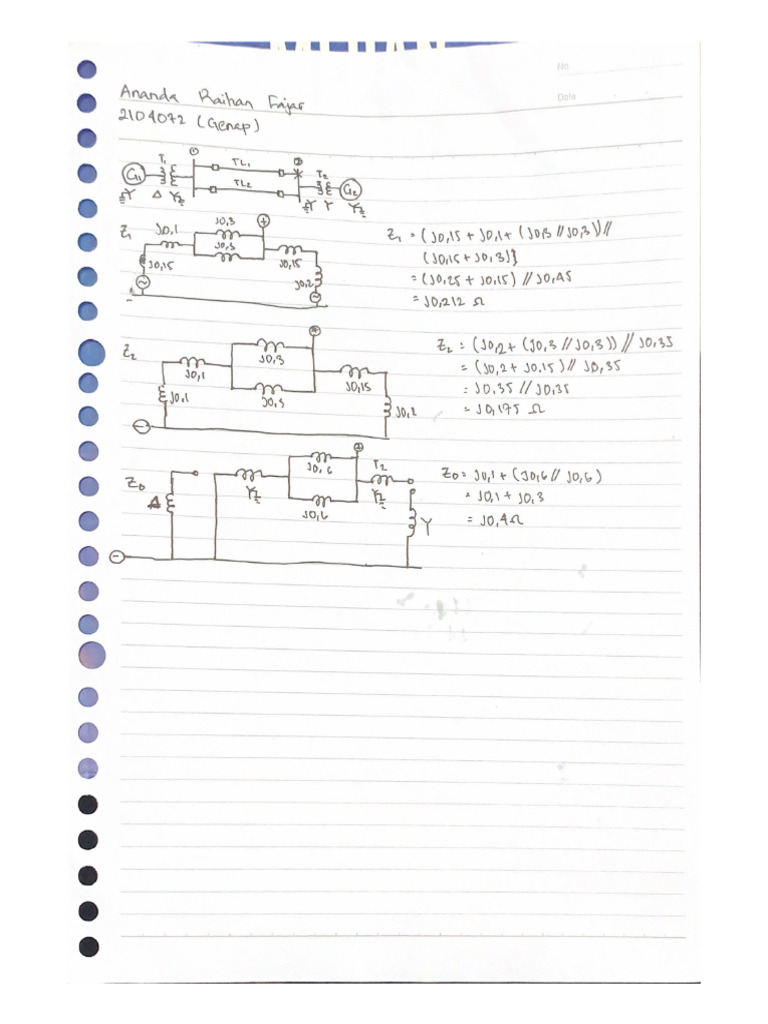 No.
Date
Ananda Raihan Fajar
2104072 (Genap)
T1 ① TL1 ② T2
G1 TL2 G2
Y Δ Y Y Y Y
Z1 j0,1 j0,3 +
j0,3
j0,15 j0,15 j0,2
Z1 = (j0,15 + j0,1 + (j0,3 // j0,3)) //
(j0,15 + j0,3)}
= (j0,25 + j0,15) // j0,45
= j0,212 Ω
Z2 j0,1 j0,3 +
j0,1 j0,3 j0,15 j0,2
-
Z2 = (j0,2 + (j0,3 // j0,3)) // j0,35
= (j0,2 + j0,15) // j0,35
= j0,35 // j0,35
= j0,175 Ω
Z0 j0,6 + T2
Δ Y j0,6 Y Y
-
Z0 = j0,1 + (j0,6 // j0,6)
= j0,1 + j0,3
= j0,4 Ω